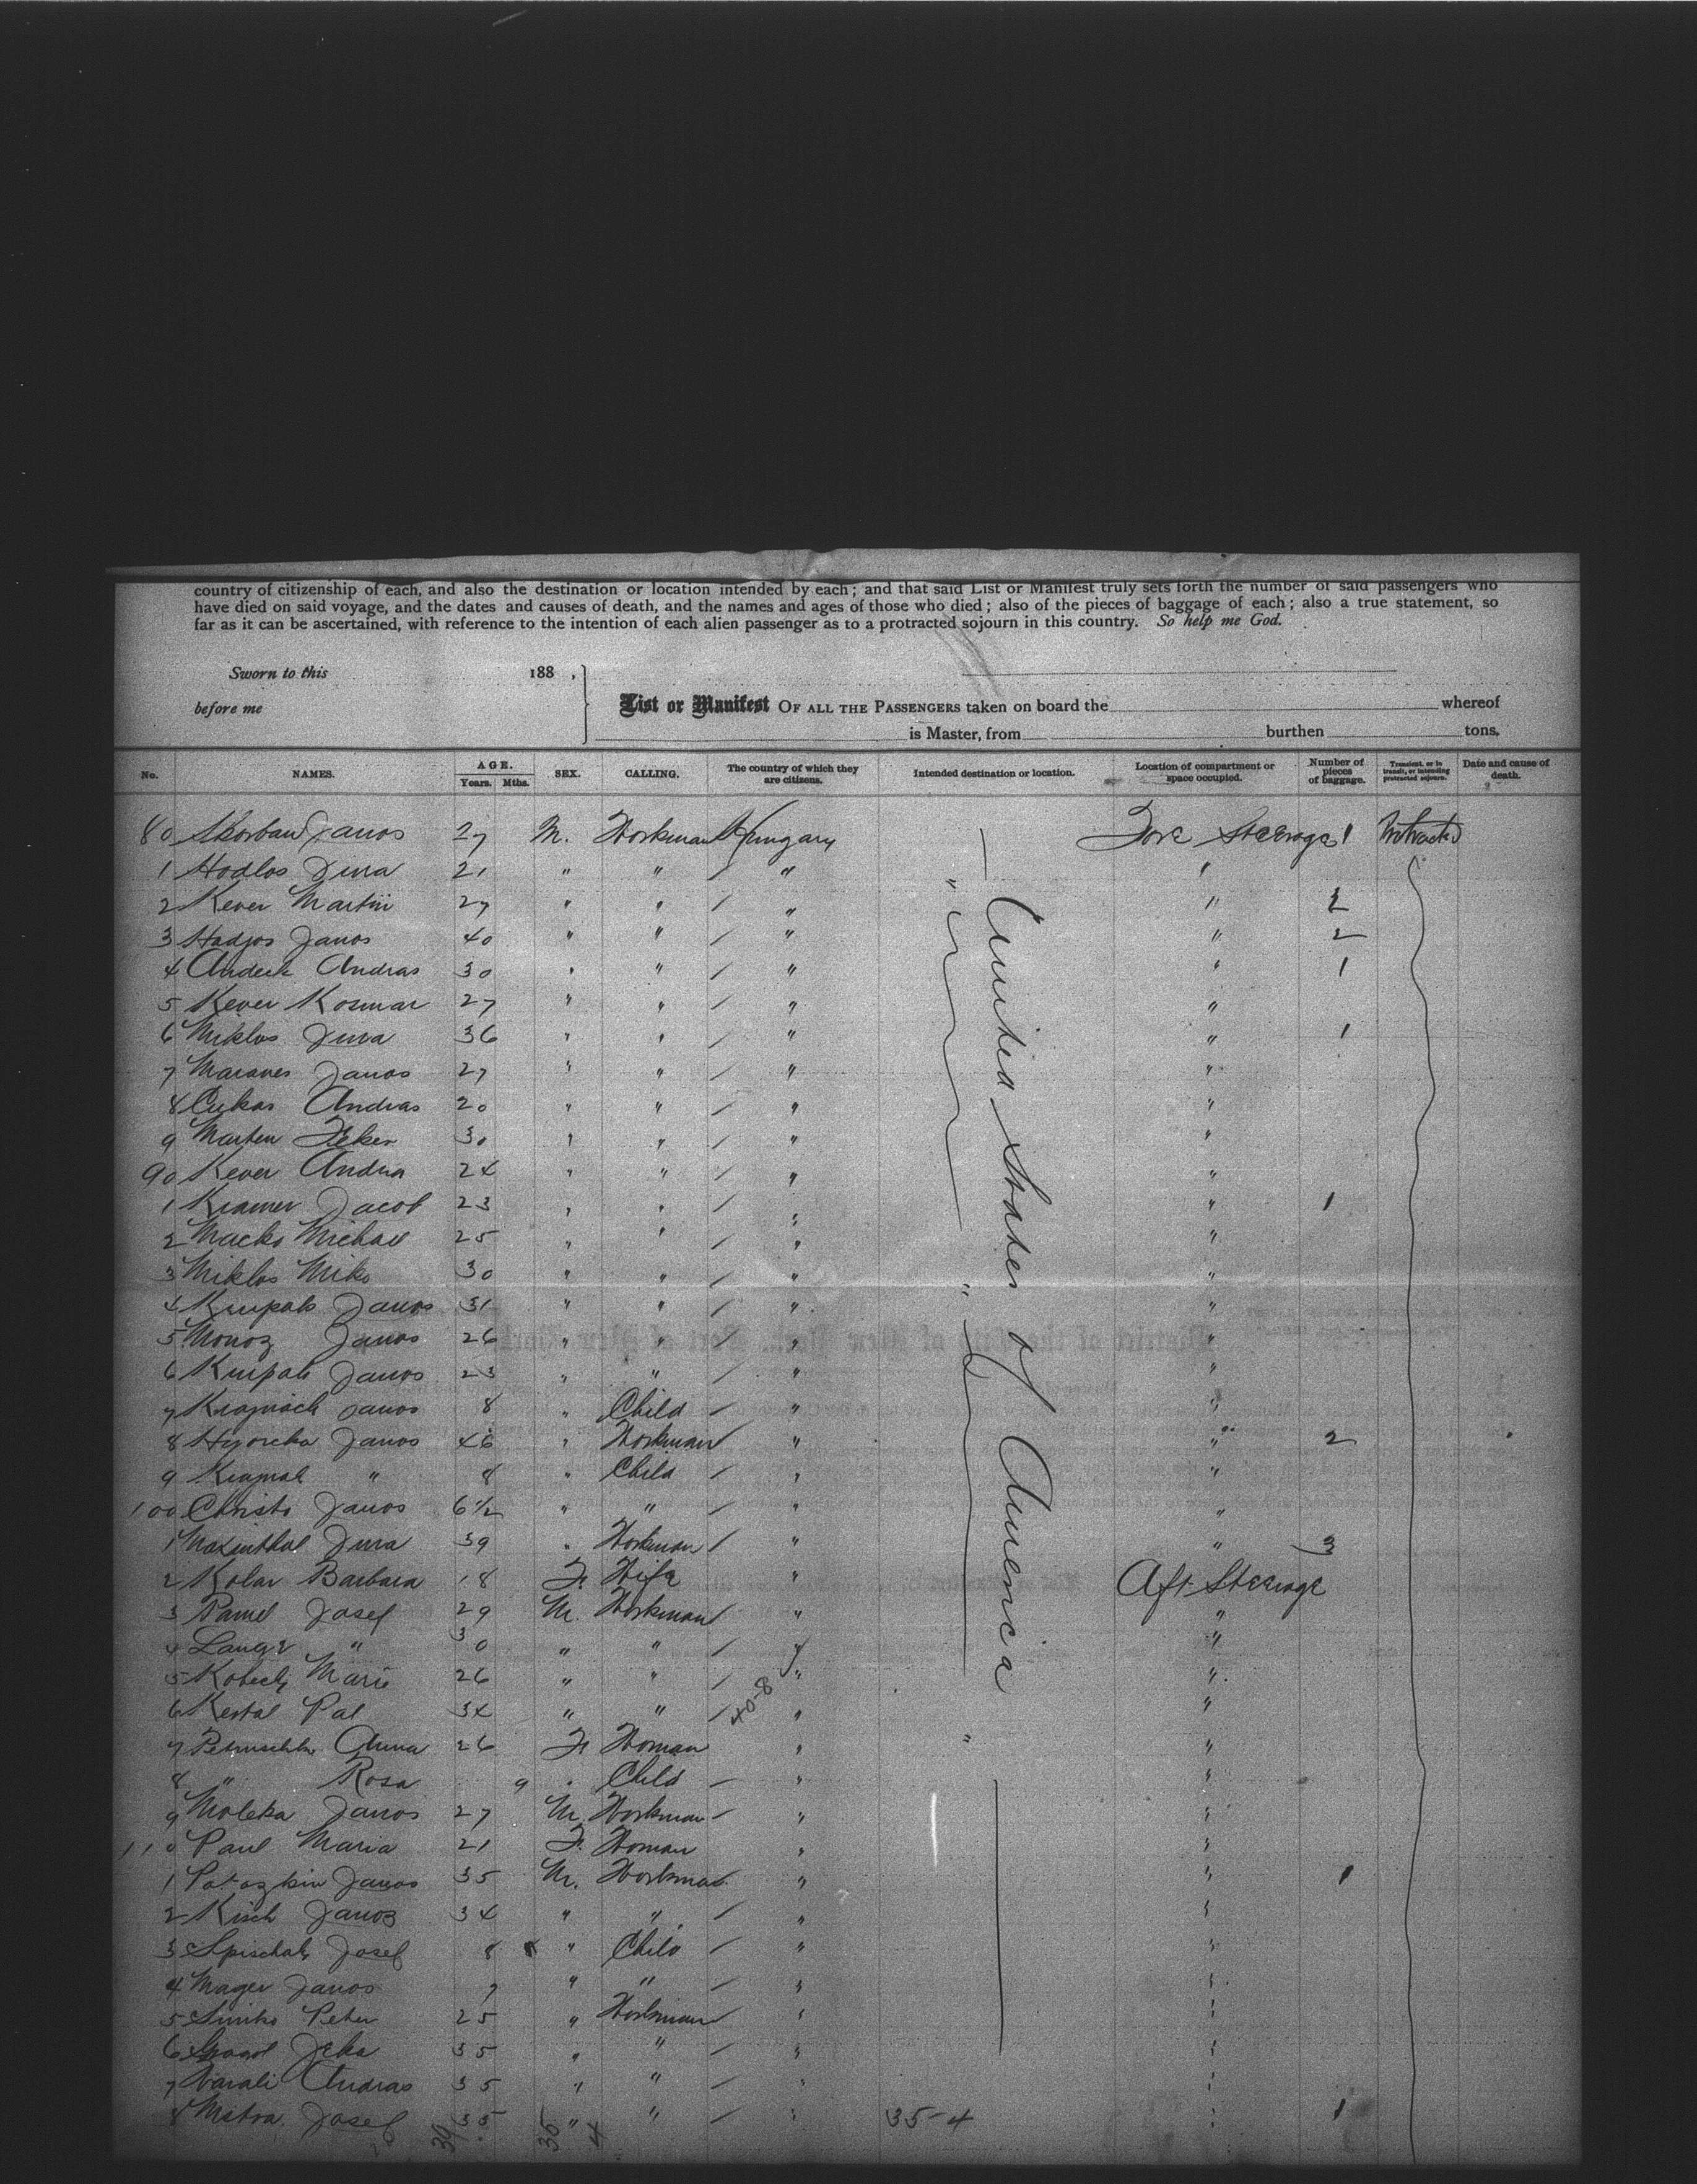 country of citizenship of each, and also the destination or location intended by each; and that said List or Manifest truly sets forth the number of said passengers who
have died on said voyage, and the dates and causes of death, and the names and ages of those who died; also of the pieces of baggage of each; also a true statement, so
far as it can be ascertained, with reference to the intention of each alien passenger as to a protracted sojourn in this country. So help me God.
Sworn to this 188 ,
before me
List or Manifest OF ALL THE PASSENGERS taken on board the whereof
is Master, from burthen tons.
No. NAMES. AGE. Years. Mths. SEX. CALLING. The country of which they are citizens. Intended destination or location. Location of compartment or space occupied. Number of pieces of baggage. Transient, or in transit, or intending protracted sojourn. Date and cause of death.
United States of America
80 Janos 27 M. Workman Hungary Fore Steerage 1 Protracted
1 Hodlos Jura 21 " " / " "
2 Kever Martin 27 " " / " "
3 Hadjos Janos 40 " " / " " 2
4 Andras 30 " " / " " 1
5 Kever Kosmar 27 " " / " "
6 Miklos Jura 36 " " / " " 1
7 Janos 27 " " / " "
8 Cukas Andras 20 " " / " "
9 Marten 30 " " / " "
90 Kever 24 " " / " "
1 Kramer Jacob 23 " " / " " 1
2 Macko Michael 25 " " / " "
3 Miklos Miko 30 " " / " "
4 Krupals Janos 31 " " / " "
5 Monoz Janos 26 " " / " "
6 Janos 23 " " / " "
7 Janos 8 " Child / " "
8 Janos 46 " Workman / " " 2
9 " 8 " Child / " "
100 Christo Janos 6 1/2 " " / " "
1 Jura 39 " Workman / " " 3
2 Kolar Barbara 18 F. Wife " Aft Steerage
3 Josef 29 M. Workman / " "
4 Lange " 30 " " / " "
5 Marie 26 " " / " "
6 Pal 34 " " / " "
40-8
7 Anna 26 F. Woman " "
8 " Rosa 9 " Child / " "
9 Moleka Janos 27 M. Workman / " "
110 Paul Maria 21 F. Woman " "
1 Janos 35 M. Workman " " 1
2 Kisch Janos 34 " " / " "
3 Spischak Josef 8 " Child / " "
4 Mager Janos 7 " " / " "
5 Simko Peter 25 " Workman " "
6 35 " " / " "
7 Varali Andras 35 " " / " "
8 Josef 35 " " / " 35-4 " 1
39 35 4